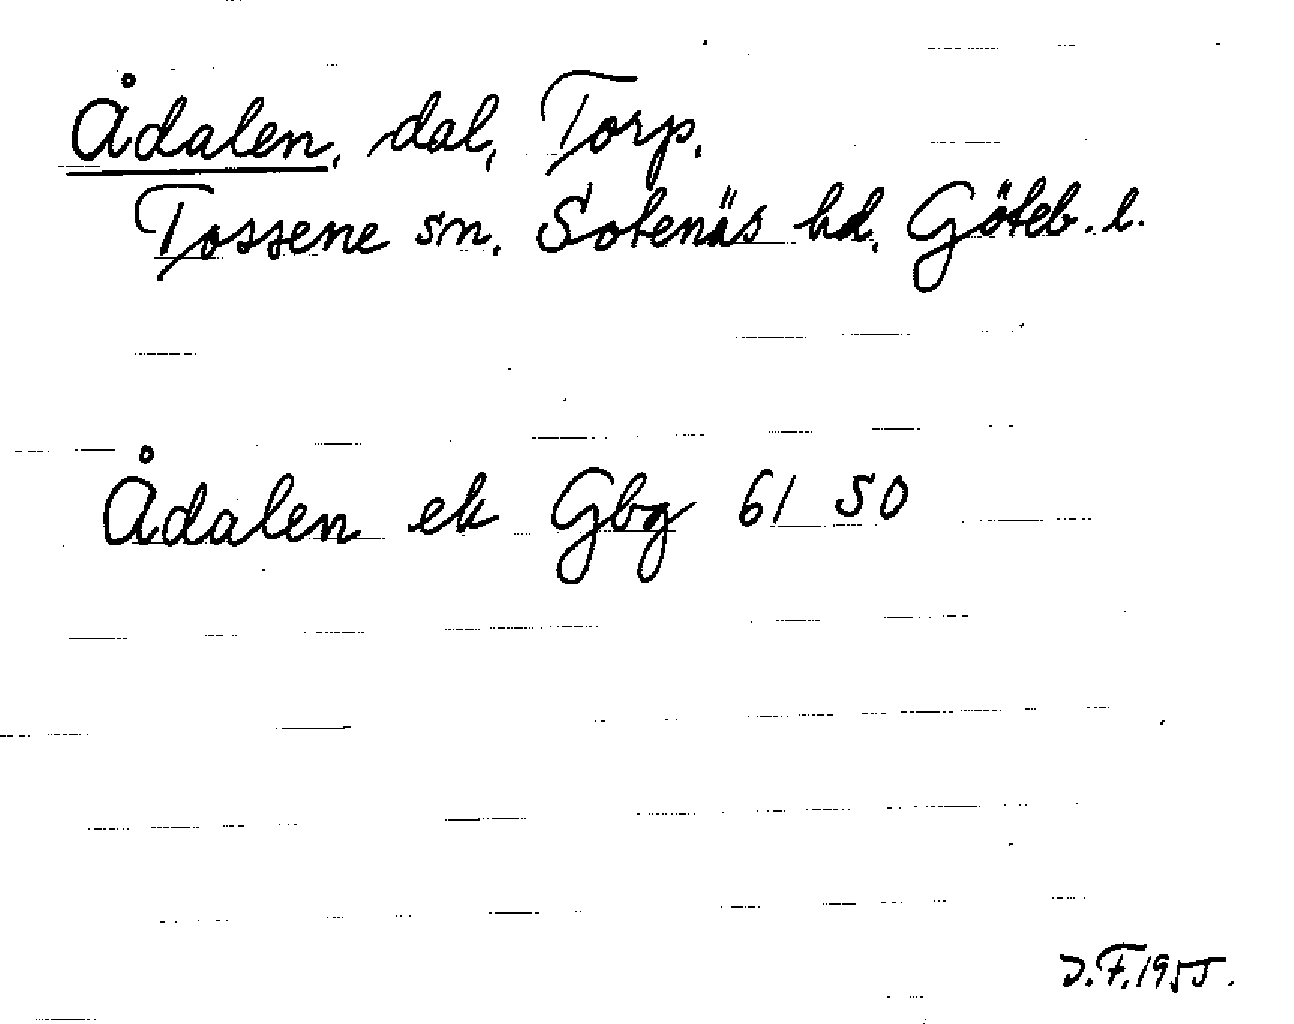 Ådalen, dal, Torp.
Tossene sn. Sotenäs hd. Göteb. l.
Ådalen ek Gbg 61 50
J.F. 1955.